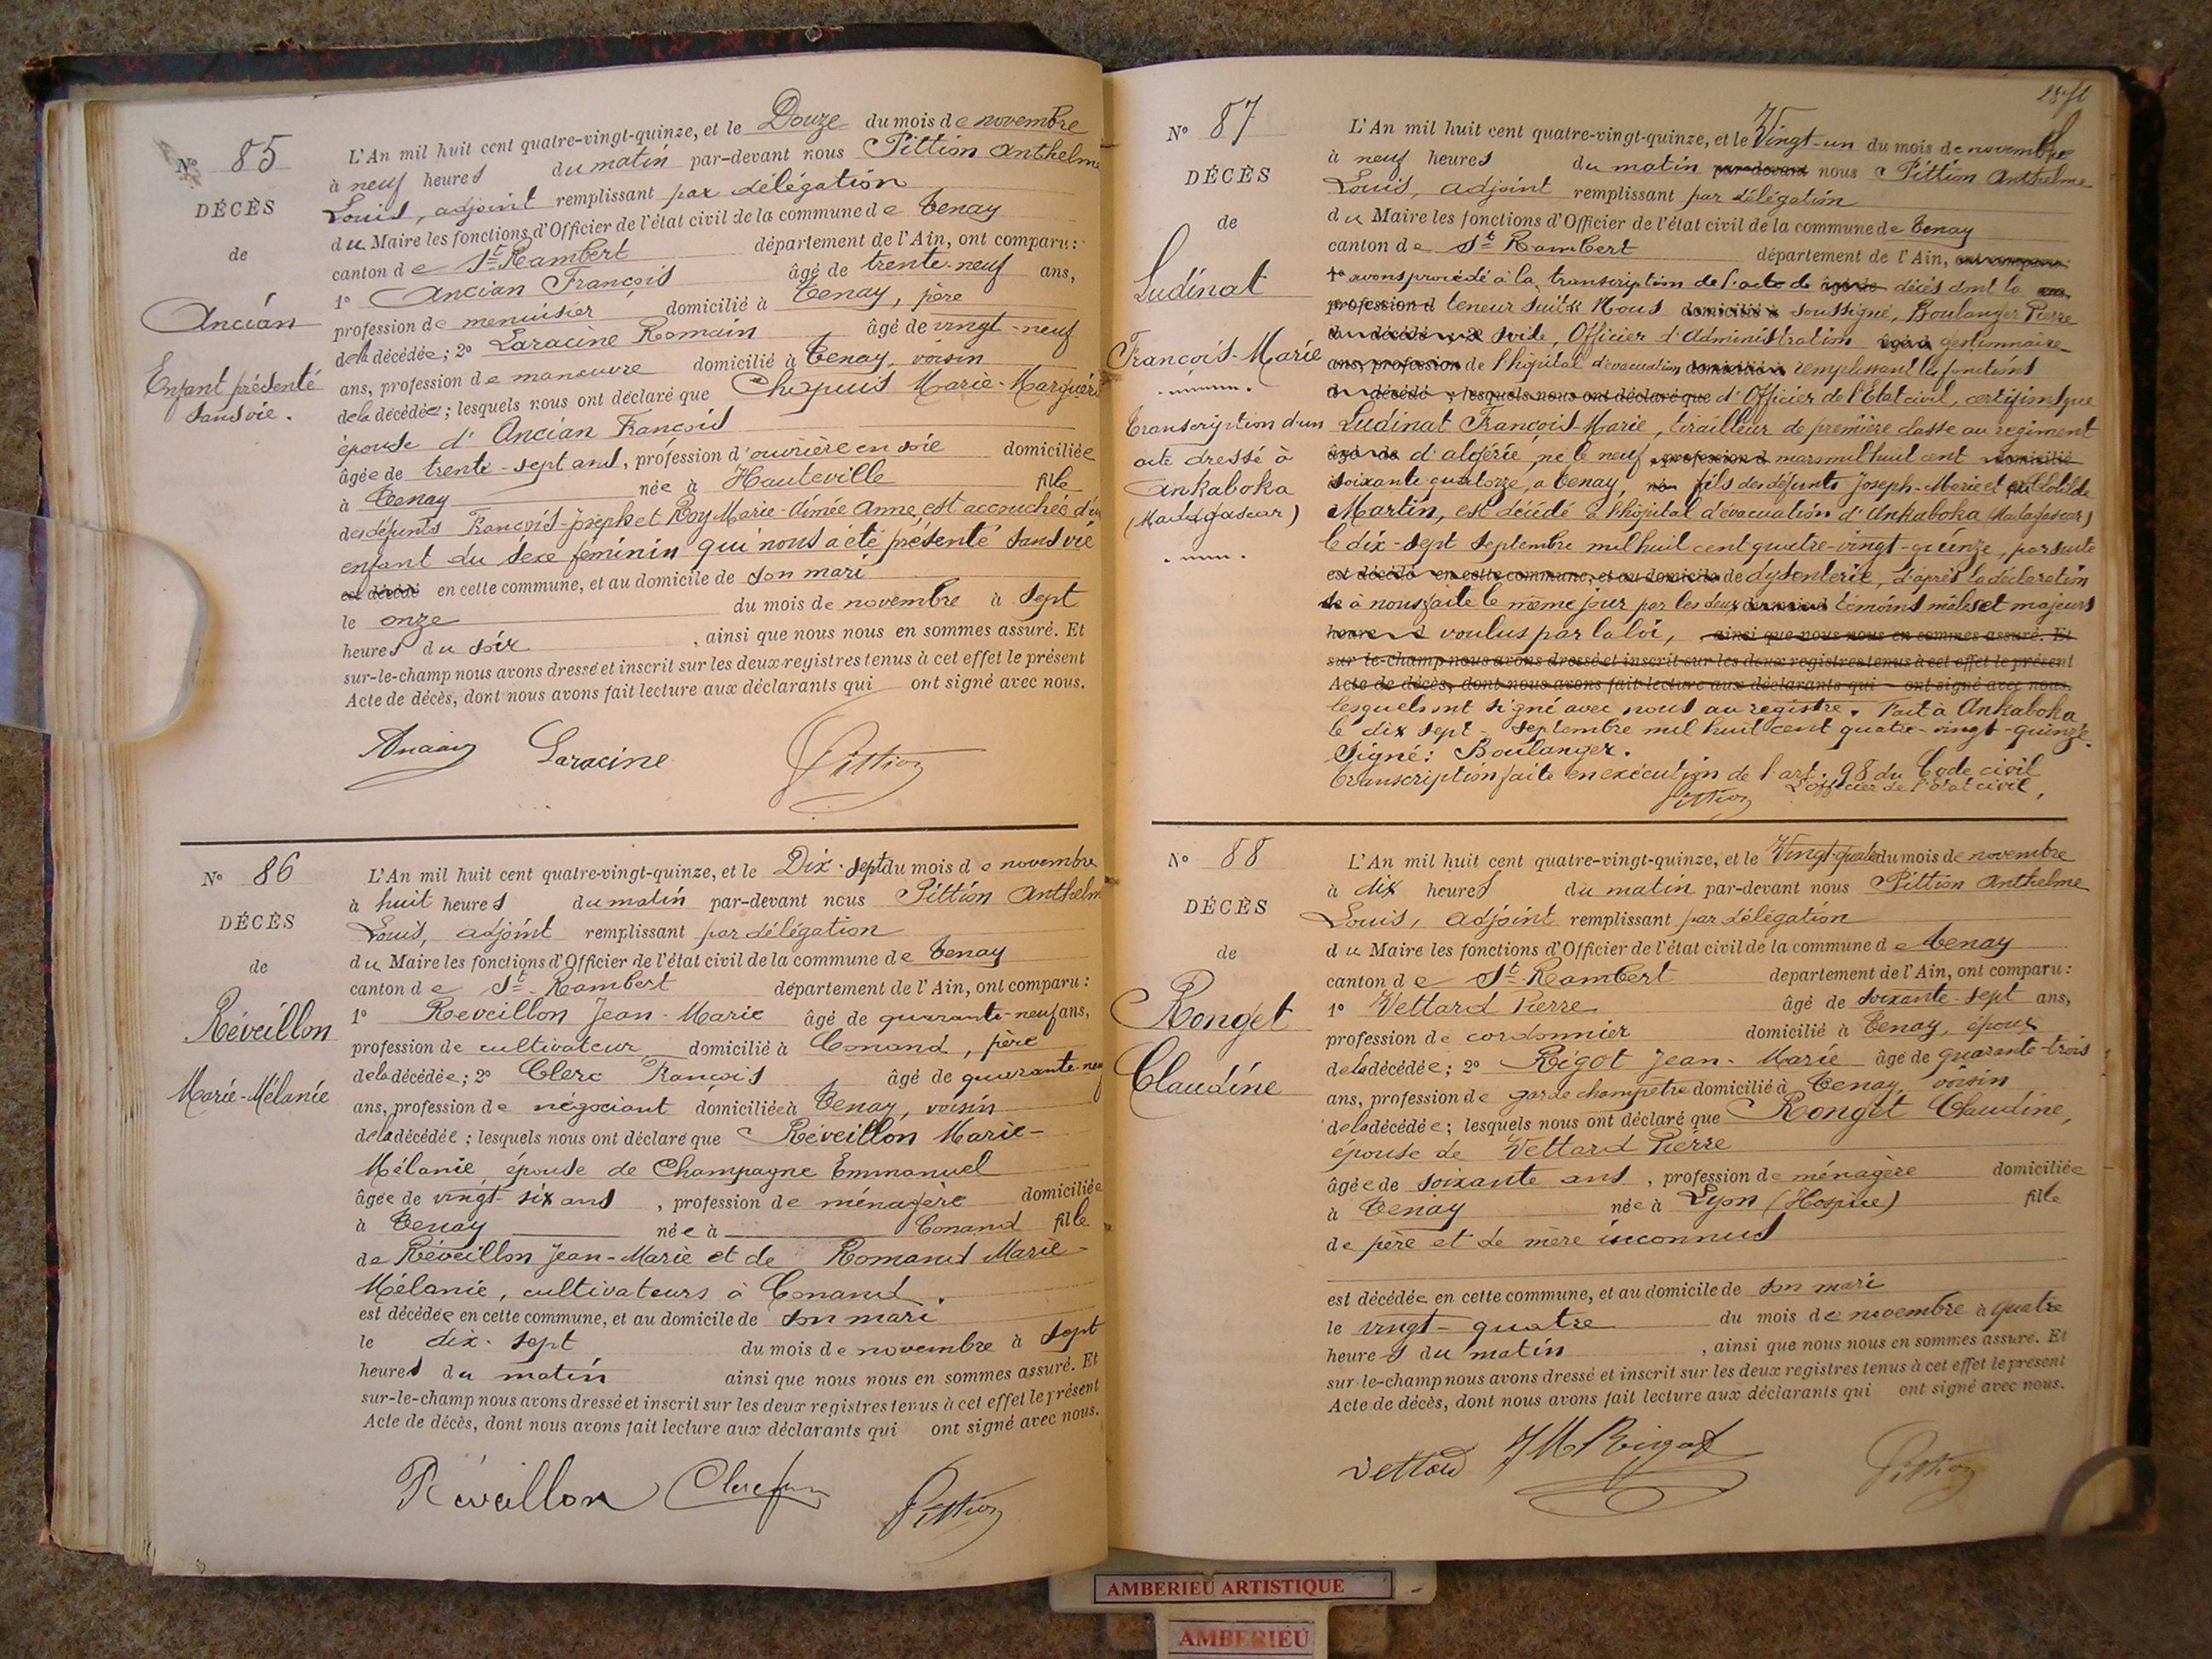 N° 85
DÉCÈS
de
Ancian
Enfant présenté
sans vie.
L'An mil huit cent quatre-vingt-quinze, et le Douze du mois de novembre
à neuf heures du matin par-devant nous Pittion Anthelme
Louis, adjoint remplissant par délégation
du Maire les fonctions d'Officier de l'état civil de la commune de Tenay
canton de St Rambert département de l'Ain, ont comparu:
1° Ancian François âgé de trente-neuf ans,
profession de menuisier domicilié à Tenay, père
de la décédée; 2° Laracine Romain âgé de vingt-neuf
ans, profession de manœuvre domicilié à Tenay, voisin
de la décédée; lesquels nous ont déclaré que Chapuis Marie-Marguéri
épouse d'Ancian François
âgée de trente-sept ans, profession d'ouvrière en soie domiciliée
à Tenay née à Hauteville fille
des défunts François-Joseph et Roy Marie-Aimée Anne, est accouchée d'un
enfant du sexe féminin qui nous a été présenté sans vie
est décédé en cette commune, et au domicile de son mari
le onze du mois de novembre à sept
heures du soir, ainsi que nous nous en sommes assuré. Et
sur-le-champ nous avons dressé et inscrit sur les deux registres tenus à cet effet le présent
Acte de décès, dont nous avons fait lecture aux déclarants qui ont signé avec nous.
Ancian Laracine Pittion
N° 86
DÉCÈS
de
Réveillon
Marie-Mélanie
L'An mil huit cent quatre-vingt-quinze, et le Dix-sept du mois de novembre
à huit heures du matin par-devant nous Pittion Anthelm
Louis, adjoint remplissant par délégation
du Maire les fonctions d'Officier de l'état civil de la commune de Tenay
canton de St Rambert département de l'Ain, ont comparu:
1° Reveillon Jean-Marie âgé de quarante-neuf ans,
profession de cultivateur domicilié à Conand, père
de la décédée; 2° Clerc François âgé de quarante-neuf
ans, profession de négociant domicilié à Tenay, voisin
de la décédée; lesquels nous ont déclaré que Réveillon Marie-
Mélanie, épouse de Champagne Emmanuel
âgée de vingt-six ans, profession de ménagère domiciliée
à Tenay née à Conand fille
de Réveillon Jean-Marie et de Romand Marie-
Mélanie, cultivateurs à Conand.
est décédée en cette commune, et au domicile de son mari
le dix-sept du mois de novembre à sept
heures du matin ainsi que nous nous en sommes assuré. Et
sur-le-champ nous avons dressé et inscrit sur les deux registres tenus à cet effet le présent
Acte de décès, dont nous avons fait lecture aux déclarants qui ont signé avec nous.
Réveillon Clerc Pittion
N° 87
DÉCÈS
de
Ludinat
François-Marie
Transcription d'un
acte dressé à
Ankaboka
(Madagascar)
L'An mil huit cent quatre-vingt-quinze, et le Vingt-un du mois de novembre
à neuf heures du matin par-devant nous Pittion Anthelme
Louis, adjoint remplissant par délégation
du Maire les fonctions d'Officier de l'état civil de la commune de Tenay
canton de St Rambert département de l'Ain, ont comparu:
1° avons procédé à la transcription de l'acte de âgé de décès dont la ans,
profession d teneur suit: Nous domicilié à soussigné, Boulanger Pierre
du décédé; 2° Officier d'Administration âgé d gestionnaire
ans, profession de l'hôpital d'évacuation domicilié à remplissant les fonctions
du décédé; lesquels nous ont déclaré que d'Officier de l'Etat civil, certifions que
Ludinat François-Marie, tirailleur de première classe au régiment
âgé de d'algérie, né le neuf profession d mars mil huit cent domicilié
soixante quatorze, à Tenay, né à fils des défunts Joseph-Marie et Clotilde
Martin, est décédé à l'hôpital d'évacuation d'Ankaboka (Madagascar)
le dix-sept septembre mil huit cent quatre-vingt-quinze, par suite
est décédé en cette commune, et au domicile de dysenterie, d'après la déclaration
à nous faite le même jour par les deux témoins mâles et majeurs
heure d voulus par la loi, ainsi que nous nous en sommes assuré. Et
sur-le-champ nous avons dressé et inscrit sur les deux registres tenus à cet effet le présent
Acte de décès, dont nous avons fait lecture aux déclarants qui ont signé avec nous.
lesquels ont signé avec nous au registre. Fait à Ankaboka
le dix sept septembre mil huit cent quatre-vingt-quinze.
Signé: Boulanger.
Transcription faite en exécution de l'art. 98 du Code civil
L'officier de l'état civil,
Pittion
N° 88
DÉCÈS
de
Ronget
Claudine
L'An mil huit cent quatre-vingt-quinze, et le Vingt-quatre du mois de novembre
à dix heures du matin par-devant nous Pittion Anthelme
Louis, adjoint remplissant par délégation
du Maire les fonctions d'Officier de l'état civil de la commune de Tenay
canton de St Rambert département de l'Ain, ont comparu:
1° Vettard Pierre âgé de soixante-sept ans,
profession de cordonnier domicilié à Tenay, époux
de la décédée; 2° Rigot Jean-Marie âgé de quarante-trois
ans, profession de garde champêtre domicilié à Tenay, voisin
de la décédée; lesquels nous ont déclaré que Ronget Claudine,
épouse de Vettard Pierre
âgée de soixante ans, profession de ménagère domiciliée
à Tenay née à Lyon (Hospice) fille
de père et de mère inconnus
est décédée en cette commune, et au domicile de son mari
le vingt-quatre du mois de novembre à quatre
heures du matin, ainsi que nous nous en sommes assuré. Et
sur-le-champ nous avons dressé et inscrit sur les deux registres tenus à cet effet le présent
Acte de décès, dont nous avons fait lecture aux déclarants qui ont signé avec nous.
Vettard JM Rigot Pittion
AMBERIEU ARTISTIQUE
AMBERIEU